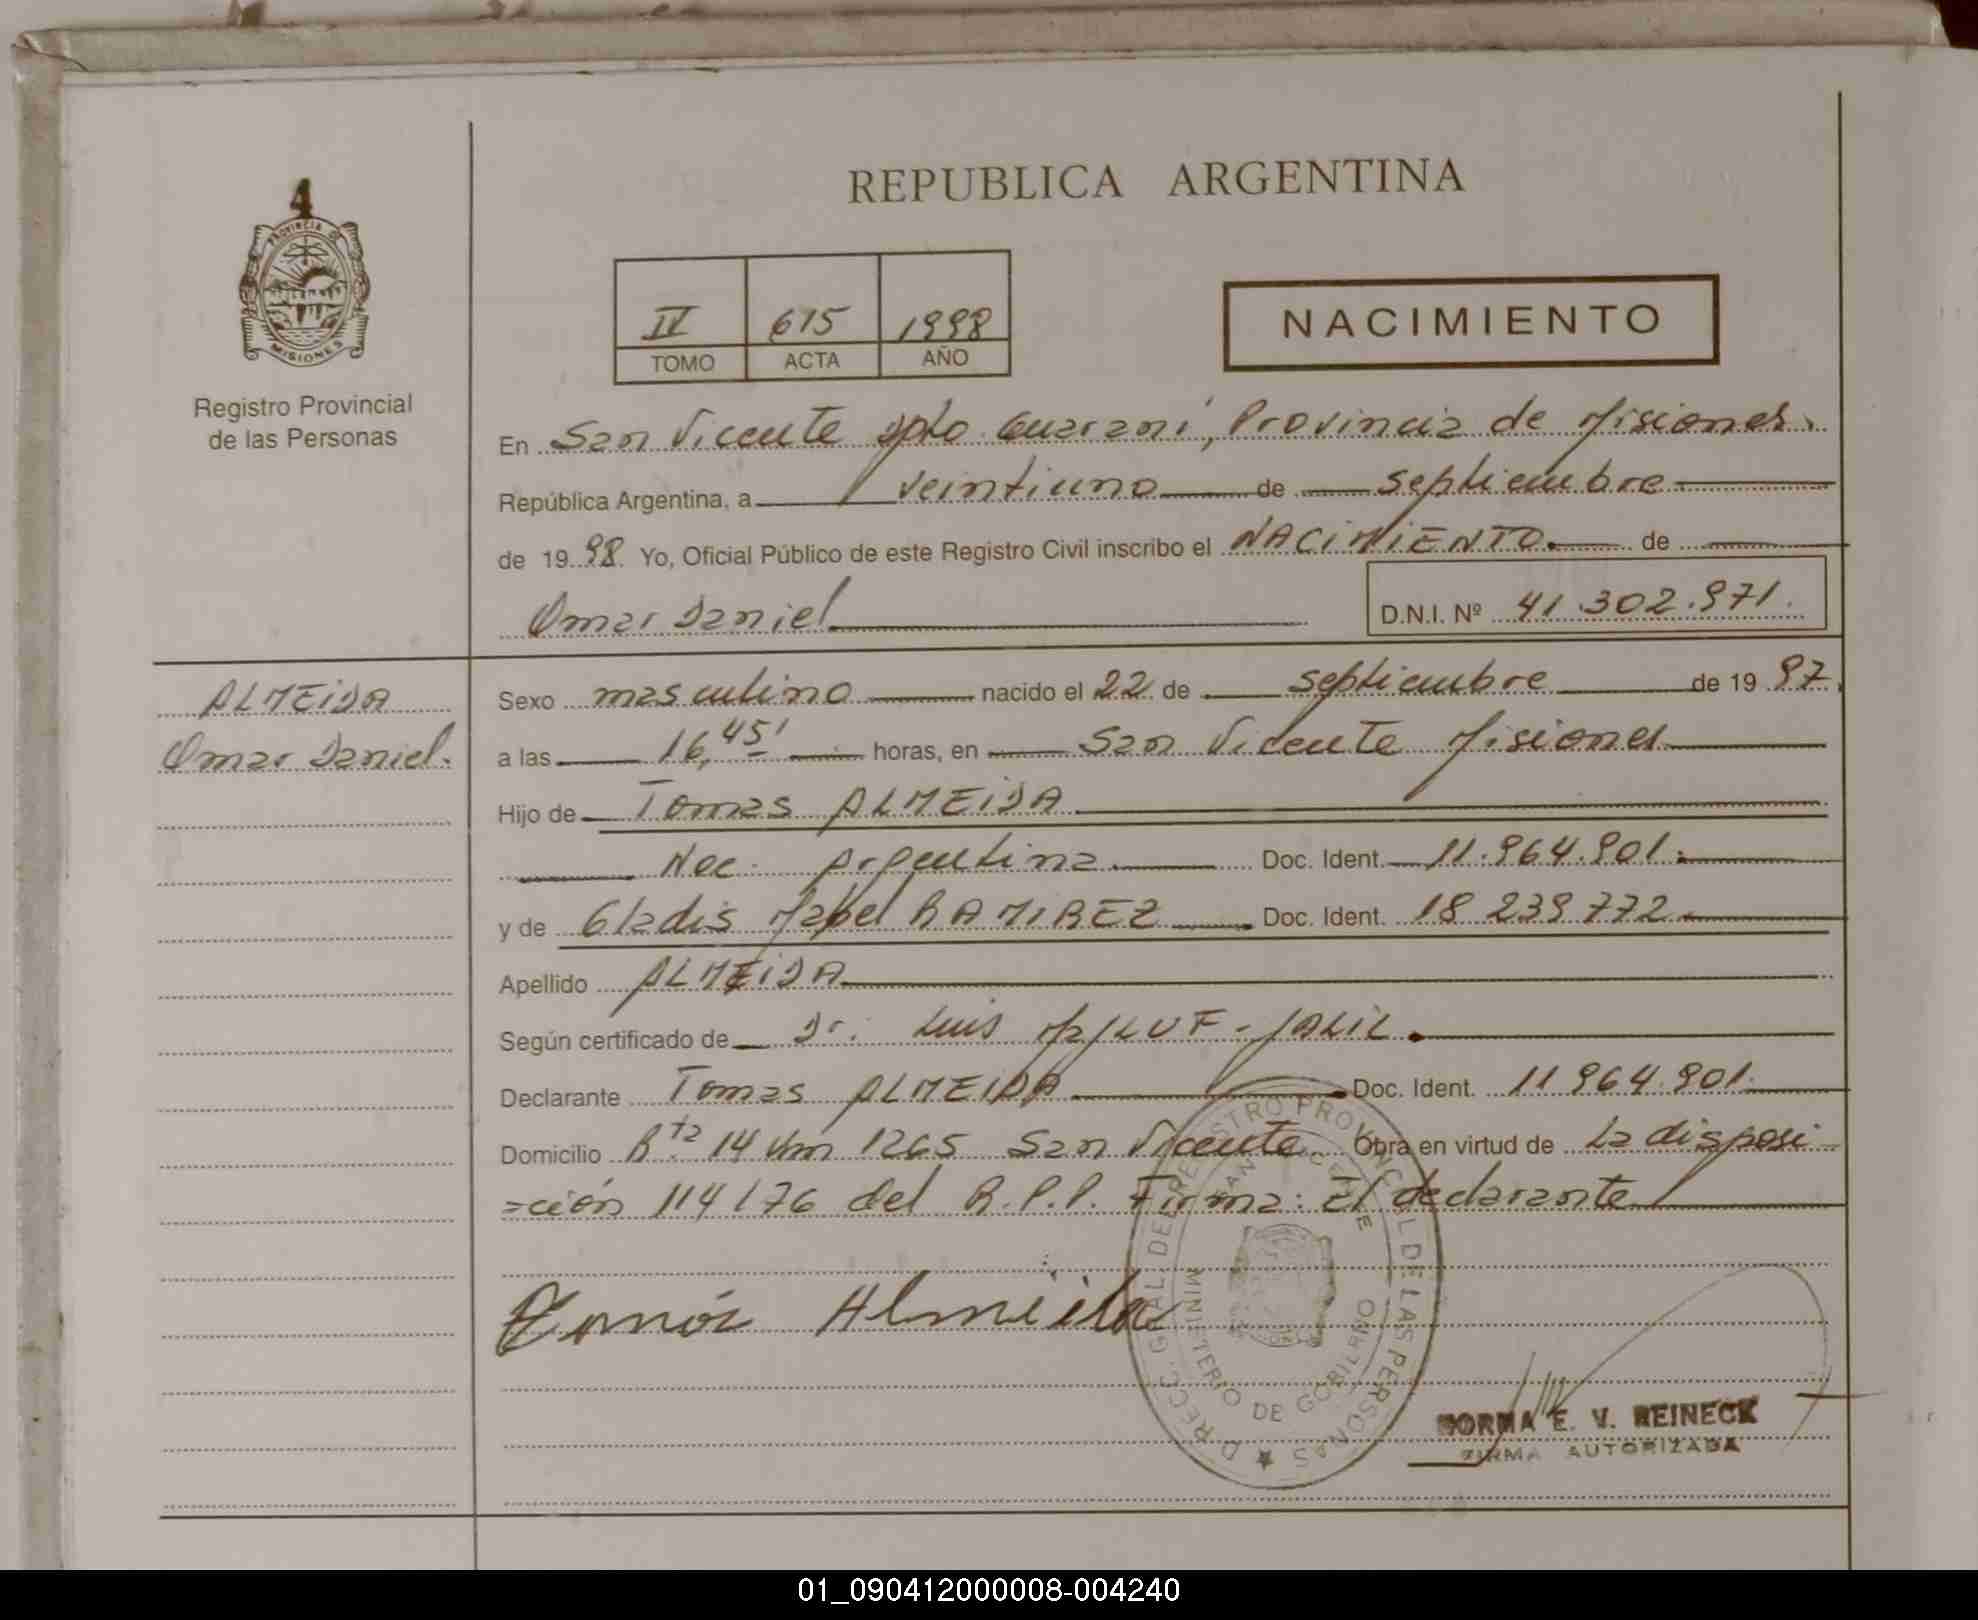 4
PROVINCIA DE
MISIONES
Registro Provincial
de las Personas
REPUBLICA ARGENTINA
IV 615 1998
TOMO ACTA AÑO
NACIMIENTO
En San Vicente Dpto. Guaraní, Provincia de Misiones.
República Argentina, a veintiuno de septiembre
de 1998 Yo, Oficial Público de este Registro Civil inscribo el NACIMIENTO. de
Omar Daniel
D.N.I. Nº 41.302.971.
ALMEIDA
Omar Daniel.
Sexo masculino nacido el 22 de septiembre de 1997.
a las 16,45' horas, en San Vicente Misiones
Hijo de Tomas ALMEIDA
Nac. Argentina. Doc. Ident. 11.964.901.
y de Gladis Mabel RAMIREZ Doc. Ident. 18 239 772.
Apellido ALMEIDA
Según certificado de Dr. Luis
Declarante Tomas ALMEIDA Doc. Ident. 11964.901.
Domicilio Rta 14 Km 1265 San Vicente. Obra en virtud de la disposi-
=ción 114/76 del R.P.P. Firma: El declarante
Tomás Almeida
DIRECC. GRAL DEL REGISTRO PROVINCIAL DE LAS PERSONAS
SAN VICENTE
MINISTERIO DE GOBIERNO
NORMA E. V. REINECK
FIRMA AUTORIZADA
01_090412000008-004240